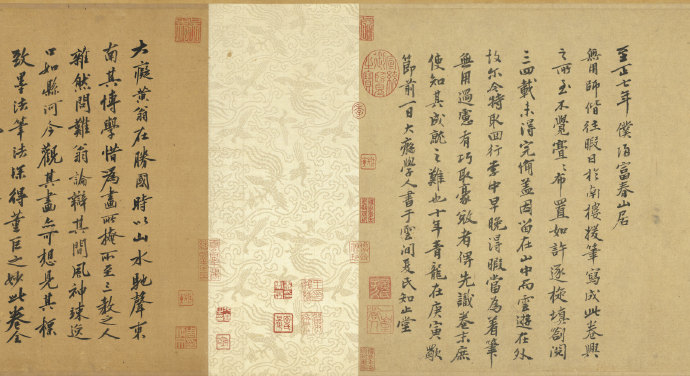 至正七年僕歸富春山居
無用師偕往暇日於南樓援筆寫成此卷興
之所至不覺亹〻布置如許逐旋填劄閱
三四載未得完備蓋因留在山中而雲遊在外
故尔今特取回行李中早晚得暇當為着筆
無用過慮有巧取豪敚者俾先識卷末庶
使知其成就之難也十年青龍在庚寅歜
節前一日大癡學人書于雲間夏氏知止堂
大癡黃翁在勝國時以山水馳聲東
南其博學惜為畫所掩所至三教之人
雜然問難翁論辯其間風神竦逸
口如懸河今觀其畫亦可想見其標
致墨法筆法深得董巨之妙此卷全